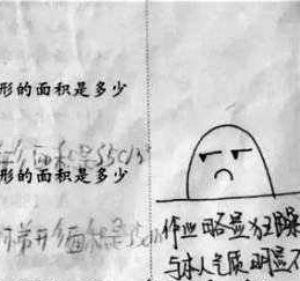 形的面积是多少
面积是55cm²
形的面积是多少
面积是
作业略显狂躁
与本人气质明显不